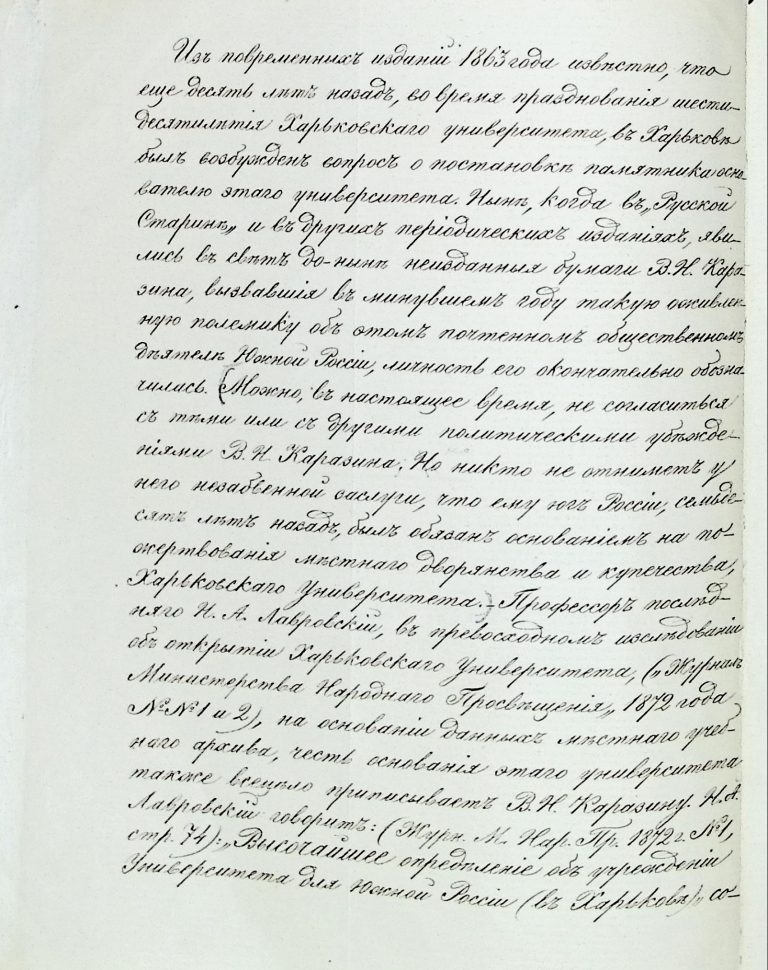 Изъ повременныхъ изданій 1863 года извѣстно, что
еще десять лѣтъ назадъ, во время празднованія шести-
десятилѣтія Харьковскаго университета, въ Харьковѣ
былъ возбужденъ вопросъ о постановкѣ памятника осно-
вателю этаго университета. Нынѣ, когда въ „Русской
Старинѣ„ и въ другихъ періодическихъ изданіяхъ, яви-
лись въ свѣтъ до-нынѣ неизданныя бумаги В. Н. Кара-
зина, вызвавшія въ минувшемъ году такую оживлен-
ную полемику объ этомъ почтенномъ общественномъ
дѣятелѣ Южной Россіи, личность его окончательно обозна-
чилась. (Можно, въ настоящее время, не согласиться
съ тѣми или съ другими политическими убѣжде-
ніями В. Н. Каразина. Но никто не отниметъ у
него незабвенной заслуги, что ему югъ Россіи, семьде-
сятъ лѣтъ назадъ, былъ обязанъ основаніемъ на по-
жертвованія мѣстнаго дворянства и купечества,
Харьковскаго Университета.) Профессоръ послѣд-
няго Н. А. Лавровскій, въ превосходномъ изслѣдованіи
объ открытіи Харьковскаго Университета, („Журналъ
Министерства Народнаго Просвѣщенія„ 1872 года
№№ 1 и 2), на основаніи данныхъ мѣстнаго учеб-
наго архива, честь основанія этаго университета
также всецѣло приписываетъ В. Н. Каразину. Н. А.
Лавровскій говоритъ: (Журн. М. Нар. Пр. 1872 г. № 1,
стр. 74): „Высочайшее опредѣленіе объ учрежденіи
Университета для Южной Россіи (въ Харьковѣ)„ со-